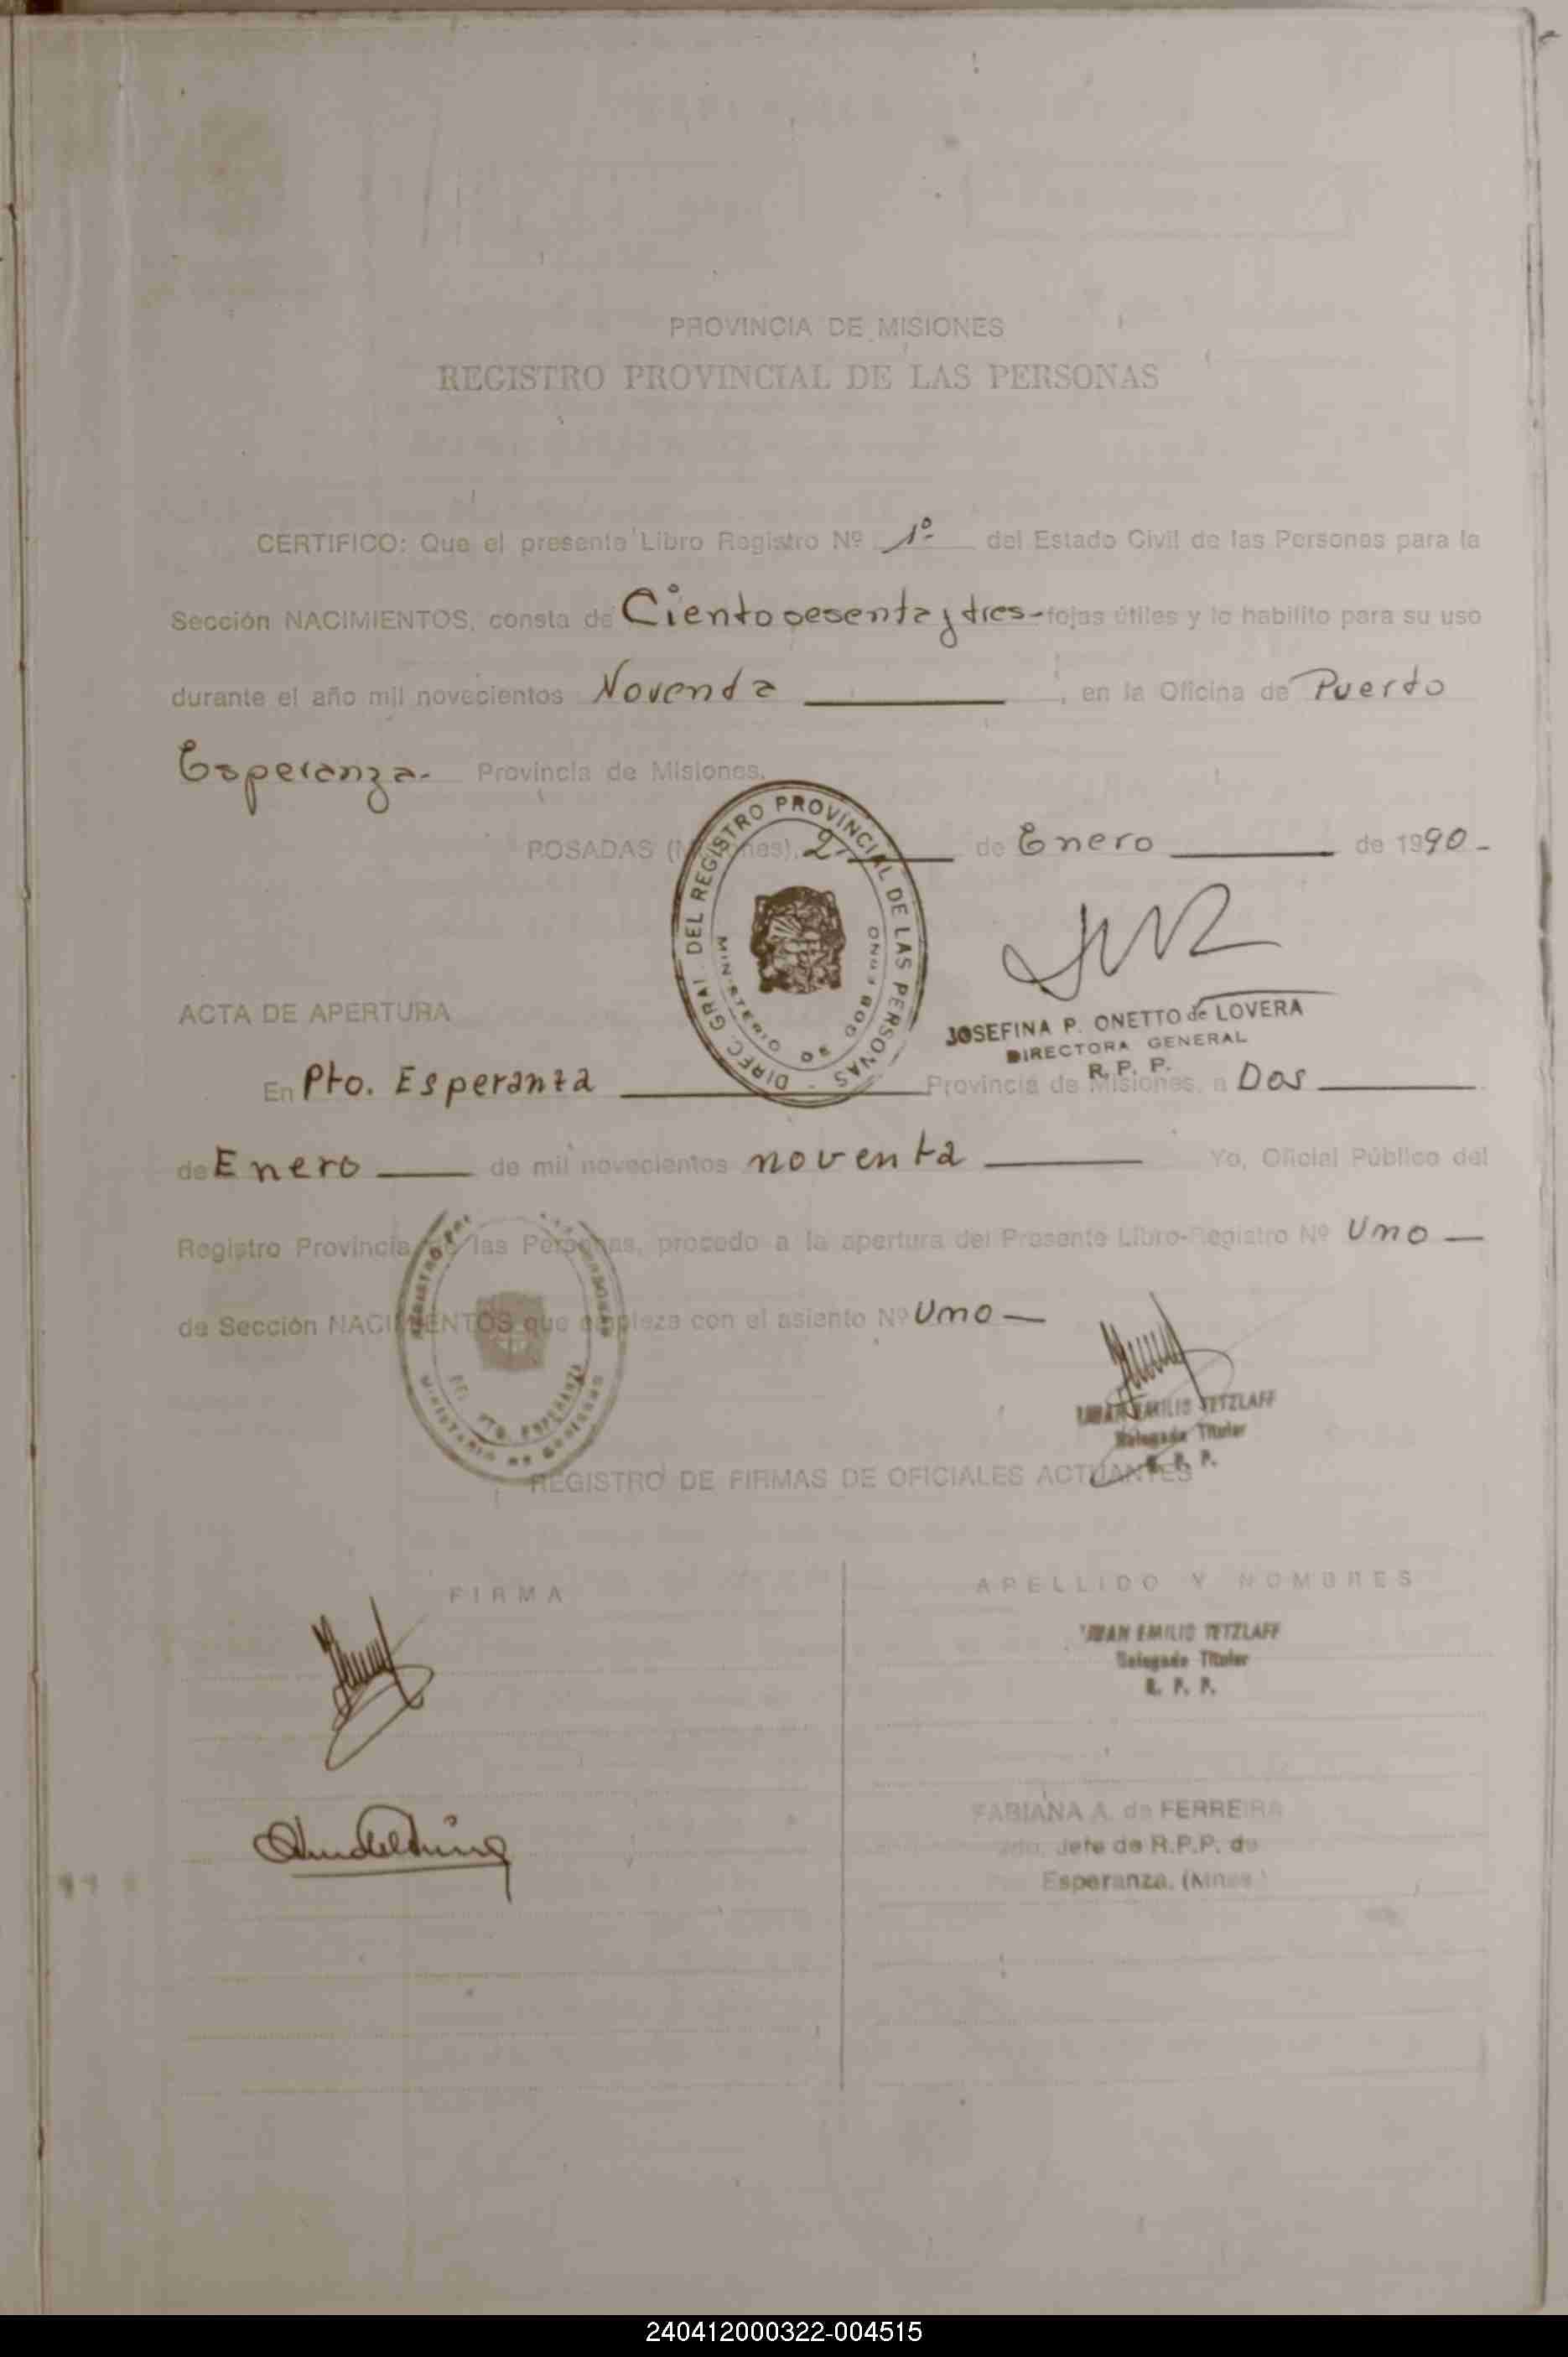 PROVINCIA DE MISIONES
REGISTRO PROVINCIAL DE LAS PERSONAS
CERTIFICO: Que el presente Libro Registro Nº 1º del Estado Civil de las Personas para la
Sección NACIMIENTOS, consta de Ciento sesenta y tres- fojas útiles y lo habilito para su uso
durante el año mil novecientos Noventa , en la Oficina de Puerto
Esperanza- Provincia de Misiones.
POSADAS (Misiones), 2 de Enero de 1990-
DIREC. GRAL. DEL REGISTRO PROVINCIAL DE LAS PERSONAS -
MINISTERIO DE GOBIERNO
JOSEFINA P. ONETTO de LOVERA
DIRECTORA GENERAL
R. P. P.
ACTA DE APERTURA
En Pto. Esperanza Provincia de Misiones, a Dos
de Enero de mil novecientos noventa Yo, Oficial Público del
Registro Provincial de las Personas, procedo a la apertura del Presente Libro-Registro Nº Uno —
de Sección NACIMIENTOS que empieza con el asiento Nº Uno —
PTO. ESPERANZA
MINISTERIO DE GOBIERNO
EMILIO TETZLAFF
Delegado Titular
R. P. P.
REGISTRO DE FIRMAS DE OFICIALES ACTUANTES
FIRMA
APELLIDO Y NOMBRES
JUAN EMILIO TETZLAFF
Delegado Titular
R. P. P.
FABIANA A. de FERREIRA
Jefe de R.P.P. de
Esperanza, (Mnes.)
240412000322-004515